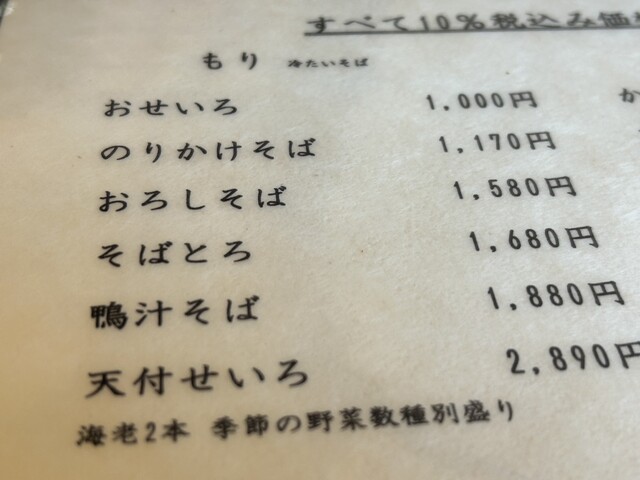 すべて10%税込み価
もり 冷たいそば
おせいろ 1,000円 か
のりかけそば 1,170円
おろしそば 1,580円
そばとろ 1,680円
鴨汁そば 1,880円
天付せいろ 2,890円
海老2本 季節の野菜数種別盛り